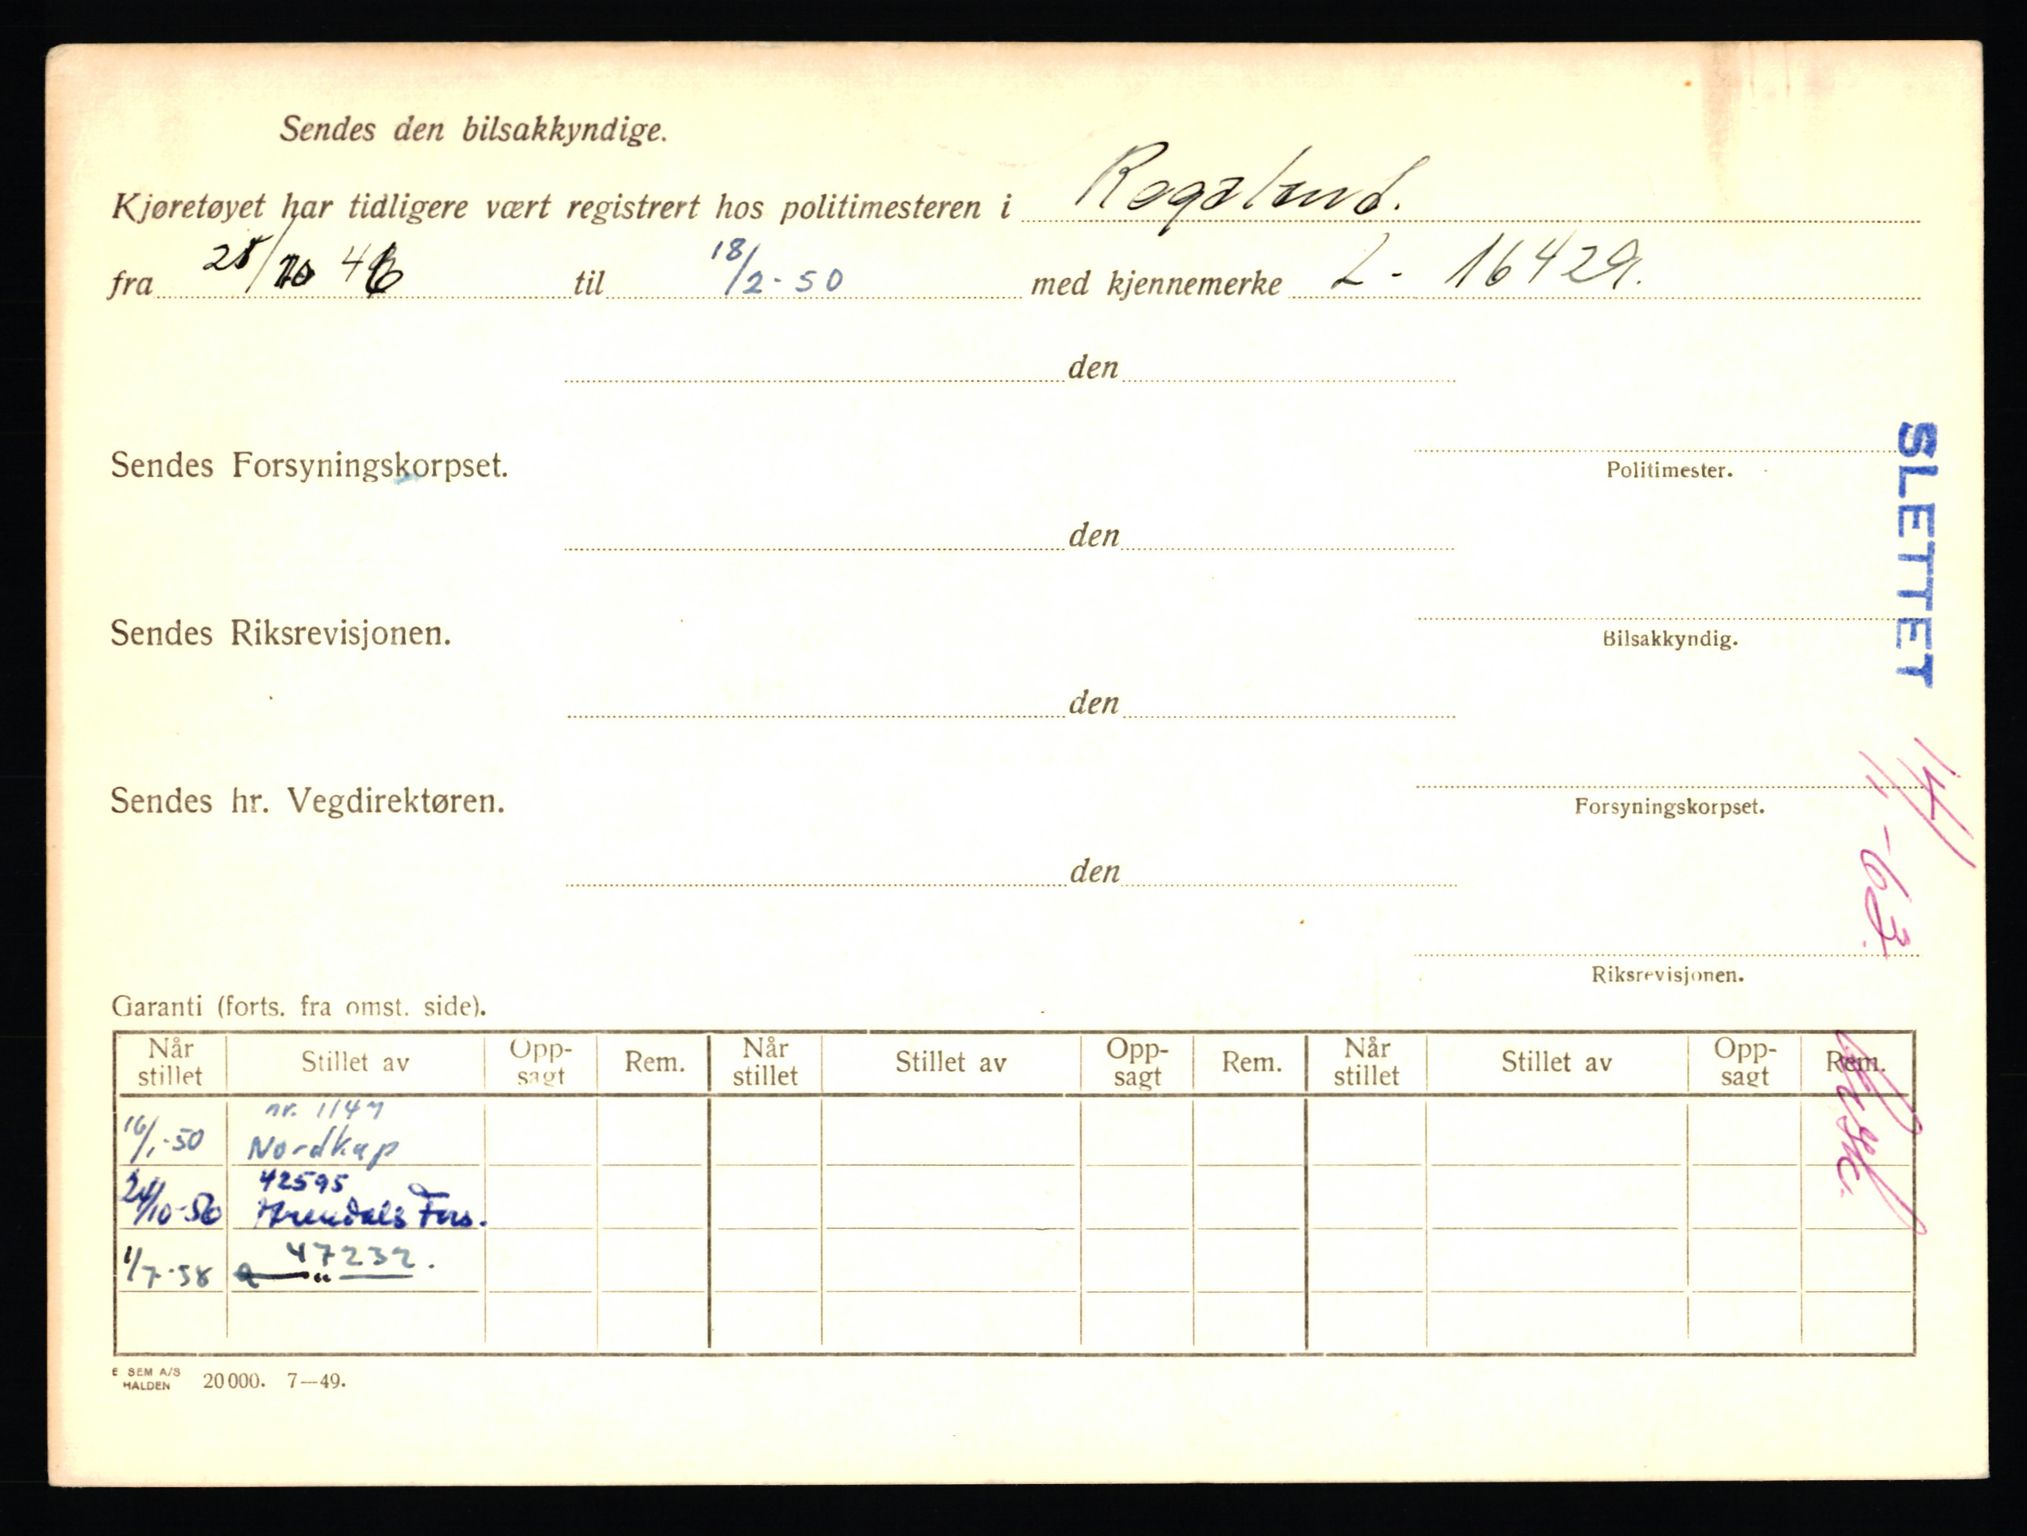 Sendes den bilsakkyndige.
Kjøretøyet har tidligere vært registrert hos politimesteren i Rogaland.
fra 28/10 46 til 18/2-50 med kjennemerke L- 16429.
den
Sendes Forsyningskorpset.
Politimester.
den
Sendes Riksrevisjonen.
Bilsakkyndig.
den
Sendes hr. Vegdirektøren.
Forsyningskorpset.
den
Riksrevisjonen.
SLETTET 14/11-63.
Garanti (forts. fra omst. side).
Når stillet Stillet av Opp-sagt Rem. Når stillet Stillet av Opp-sagt Rem. Når stillet Stillet av Opp-sagt Rem.
nr. 1147
16/1-50 Nordkap
42595
24/10-50 Arendals Fors.
47232.
1/7-58 — " —
E SEM A/S
HALDEN 20000. 7—49.